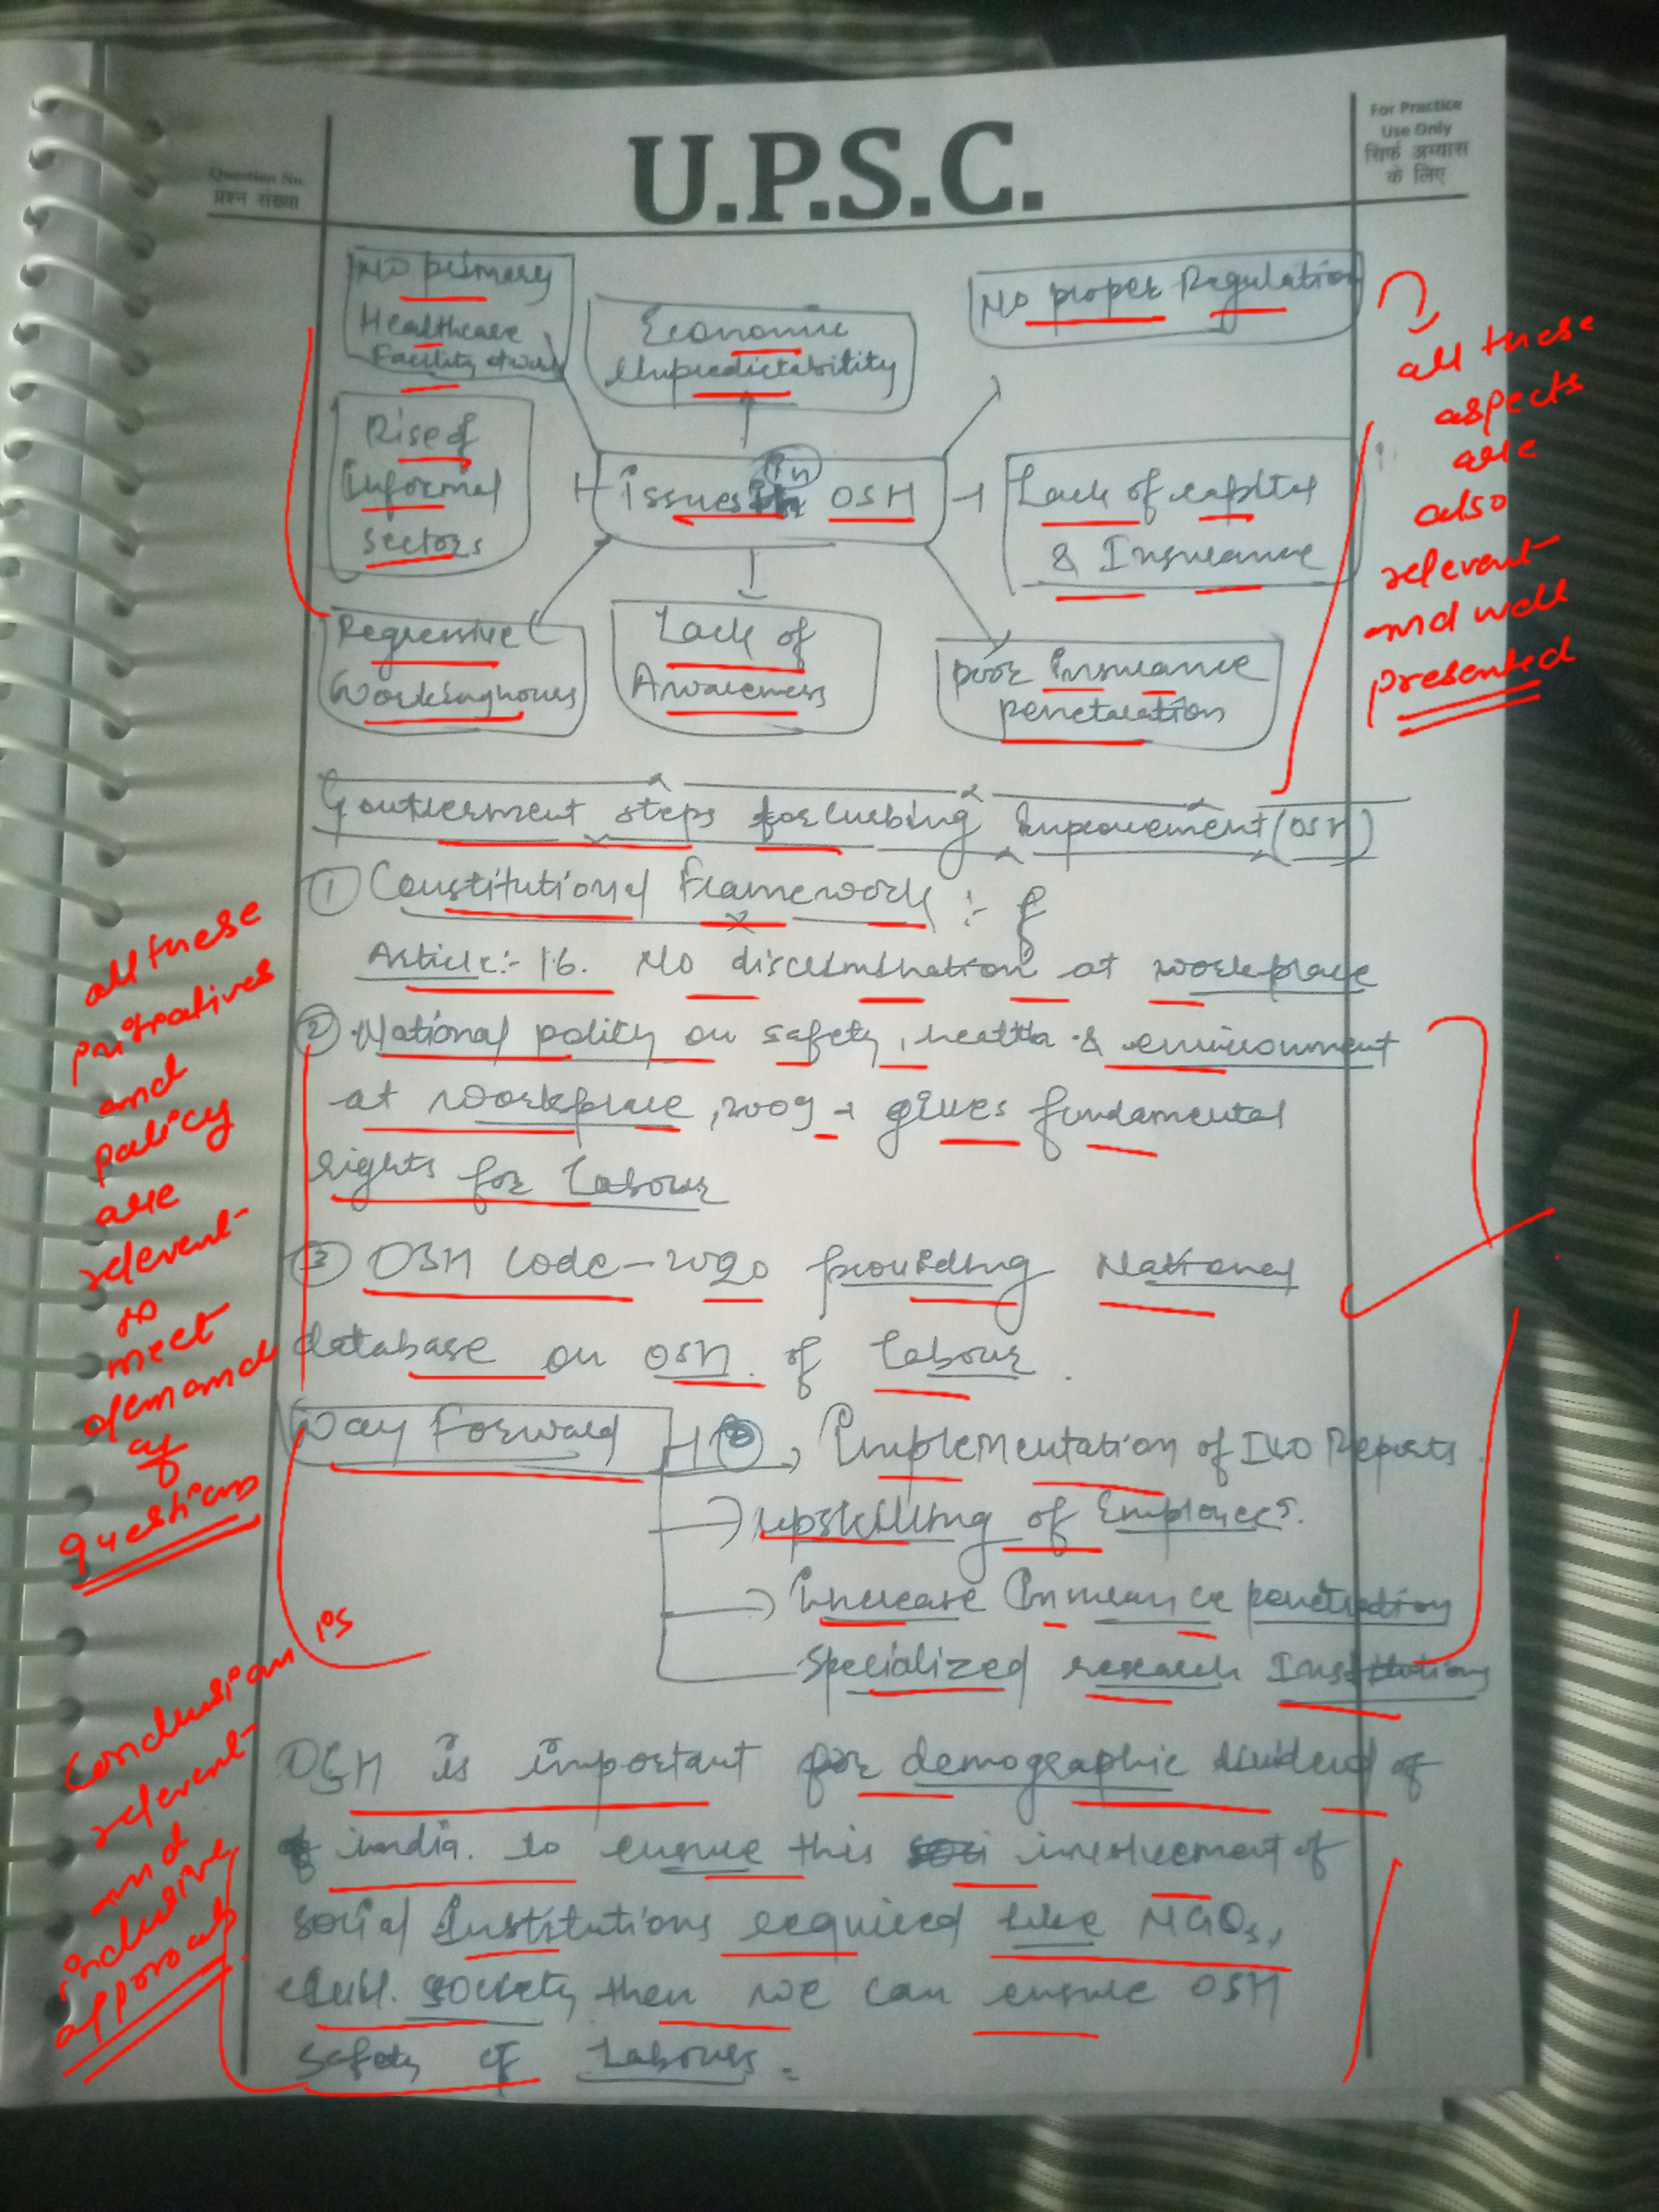 Question No.
प्रश्न संख्या
U.P.S.C.
For Practice
Use Only
सिर्फ अभ्यास
के लिए
No primary
Healthcare
Facility
Economic
Unpredictability
No proper Regulation
Rise of
Informal
Sectors
issues in OSH
Lack of capital
& Insurance
Regressive
Workinghours
Lack of
Awareness
poor Insurance
penetration
all these
aspects
are
also
relevent
and well
presented
Goutverment steps for curbing Improvement (OSH)
① Constitutional Framework :-
Article:- 16. No discrimination at workplace
② National policy on safety, health & environment
at workplace, 2009 → gives fundamental
rights for Labour
③ OSH Code - 2020 providing National
database on OSH. of Labour.
all these
and
policy
are
relevent
to
meet
demand
of
question
Way Forward
Implementation of ILO Reports.
→ upskilling of Employees.
→ Increase Insurance penetration
Specialized research Institutions
OSH is important for demographic dividend of
india. to ensure this involvement of
social Institutions required like NGOs,
civil. society then we can ensure OSH
safety of Labours.
Conclusion is
relevent
and
inclusive
approach